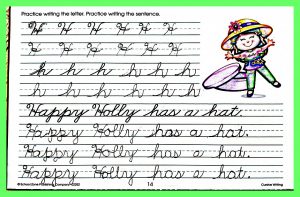 Practice writing the letter. Practice writing the sentence.
H H H H H H
H H H H H H
h h h h h h h
h h h h h h h
Happy Holly has a hat.
Happy Holly has a hat.
Happy Holly has a hat.
Happy Holly has a hat.
14
Cursive Writing